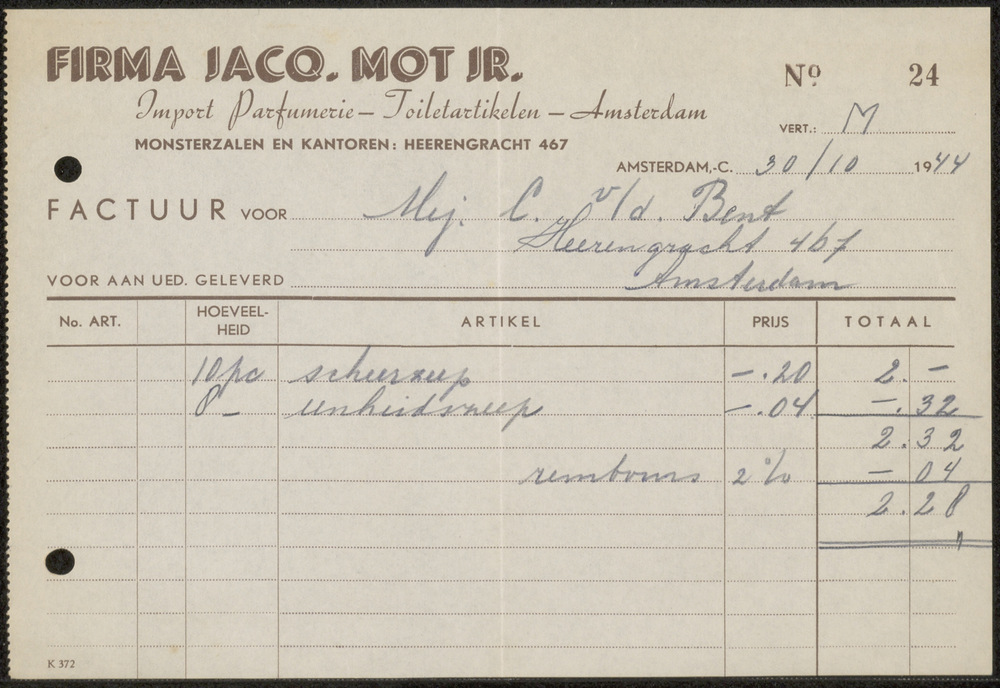 FIRMA JACQ. MOT JR.
Import Parfumerie – Toiletartikelen – Amsterdam
MONSTERZALEN EN KANTOREN: HEERENGRACHT 467
Nº 24
VERT.: M
AMSTERDAM,-C. 30/10 1944
FACTUUR VOOR Mej. C. v/d. Bent
Heerengracht 467
Amsterdam
VOOR AAN UED. GELEVERD
No. ART. HOEVEEL-HEID ARTIKEL PRIJS TOTAAL
10 pc scheerzeep –.20 2.–
8 – eenheidszeep –.04 –.32
2.32
rembours 2% – 04
2.28
K 372